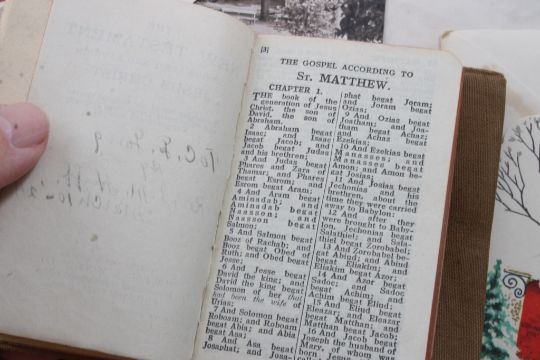 To C.
[3]
THE GOSPEL ACCORDING TO
ST. MATTHEW.
CHAPTER 1.
THE book of the
generation of Jesus
Christ, the son of
David, the son of
Abraham.
2 Abraham begat
Isaac; and Isaac
begat Jacob; and
Jacob begat Judas
and his brethren;
3 And Judas begat
Phares and Zara of
Thamar; and Phares
begat Esrom; and
Esrom begat Aram;
4 And Aram begat
Aminadab; and
Aminadab begat
Naasson; and
Naasson begat
Salmon;
5 And Salmon begat
Booz of Rachab; and
Booz begat Obed of
Ruth; and Obed begat
Jesse;
6 And Jesse begat
David the king; and
David the king begat
Solomon of her that
had been the wife of
Urias;
7 And Solomon begat
Roboam; and Roboam
begat Abia; and Abia
begat Asa;
8 And Asa begat
Josaphat; and Josa-
phat begat Joram;
and Joram begat
Ozias;
9 And Ozias begat
Joatham; and Joa-
tham begat Achaz;
and Achaz begat
Ezekias;
10 And Ezekias begat
Manasses; and
Manasses begat
Amon; and Amon be-
gat Josias;
11 And Josias begat
Jechonias and his
brethren, about the
time they were carried
away to Babylon:
12 And after they
were brought to Baby-
lon, Jechonias begat
Salathiel; and Sala-
thiel begat Zorobabel;
13 And Zorobabel be-
gat Abiud; and Abiud
begat Eliakim; and
Eliakim begat Azor;
14 And Azor begat
Sadoc; and Sadoc
begat Achim; and
Achim begat Eliud;
15 And Eliud begat
Eleazar; and Eleazar
begat Matthan; and
Matthan begat Jacob;
16 And Jacob begat
Joseph the husband of
Mary, of whom was
born Jesus,